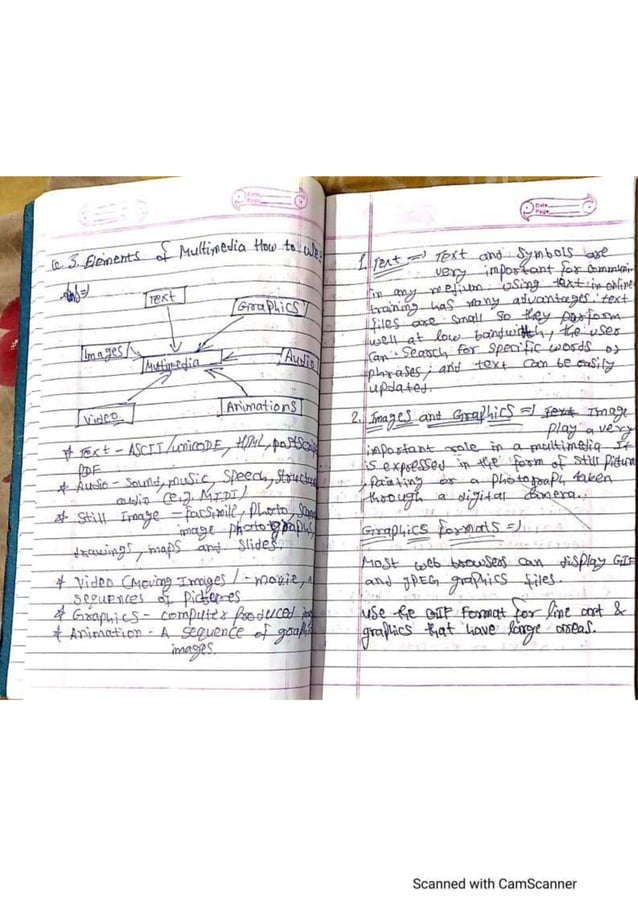 Date
Page
Q 3. Elements of Multimedia How to use
Ans⇒
Text
Graphics
Images
Multimedia
Audio
Video
Animations
* Text - ASCII/unicode, HTML, postscrip
PDF
* Audio - Sound, music, Speech, Structur
audio (e.g. MIDI)
* Still Image - facsimile, photo,
image photographs,
drawings, maps and slides.
* Video (Moving Images) - movie, a
sequences of pictures
* Graphics - computer produced
* Animation - A sequence of graphi
images.
Date
Page
1. Text ⇒ Text and symbols are
very important for communic
in any medium using text in online
training has many advantages. text
files are small so they perform
well at low bandwith, the user
can search for specific words or
phrases, and text can be easily
updated.
2. Images and Graphics ⇒ Image
play a very
important role in a multimedia It
is expressed in the form of still picture
, Painting or a photograph taken
through a digital camera.
Graphics formats ⇒
Most web browsers can display GIF
and JPEG graphics files.
Use the GIF Format for line art &
graphics that have large areas.
Scanned with CamScanner